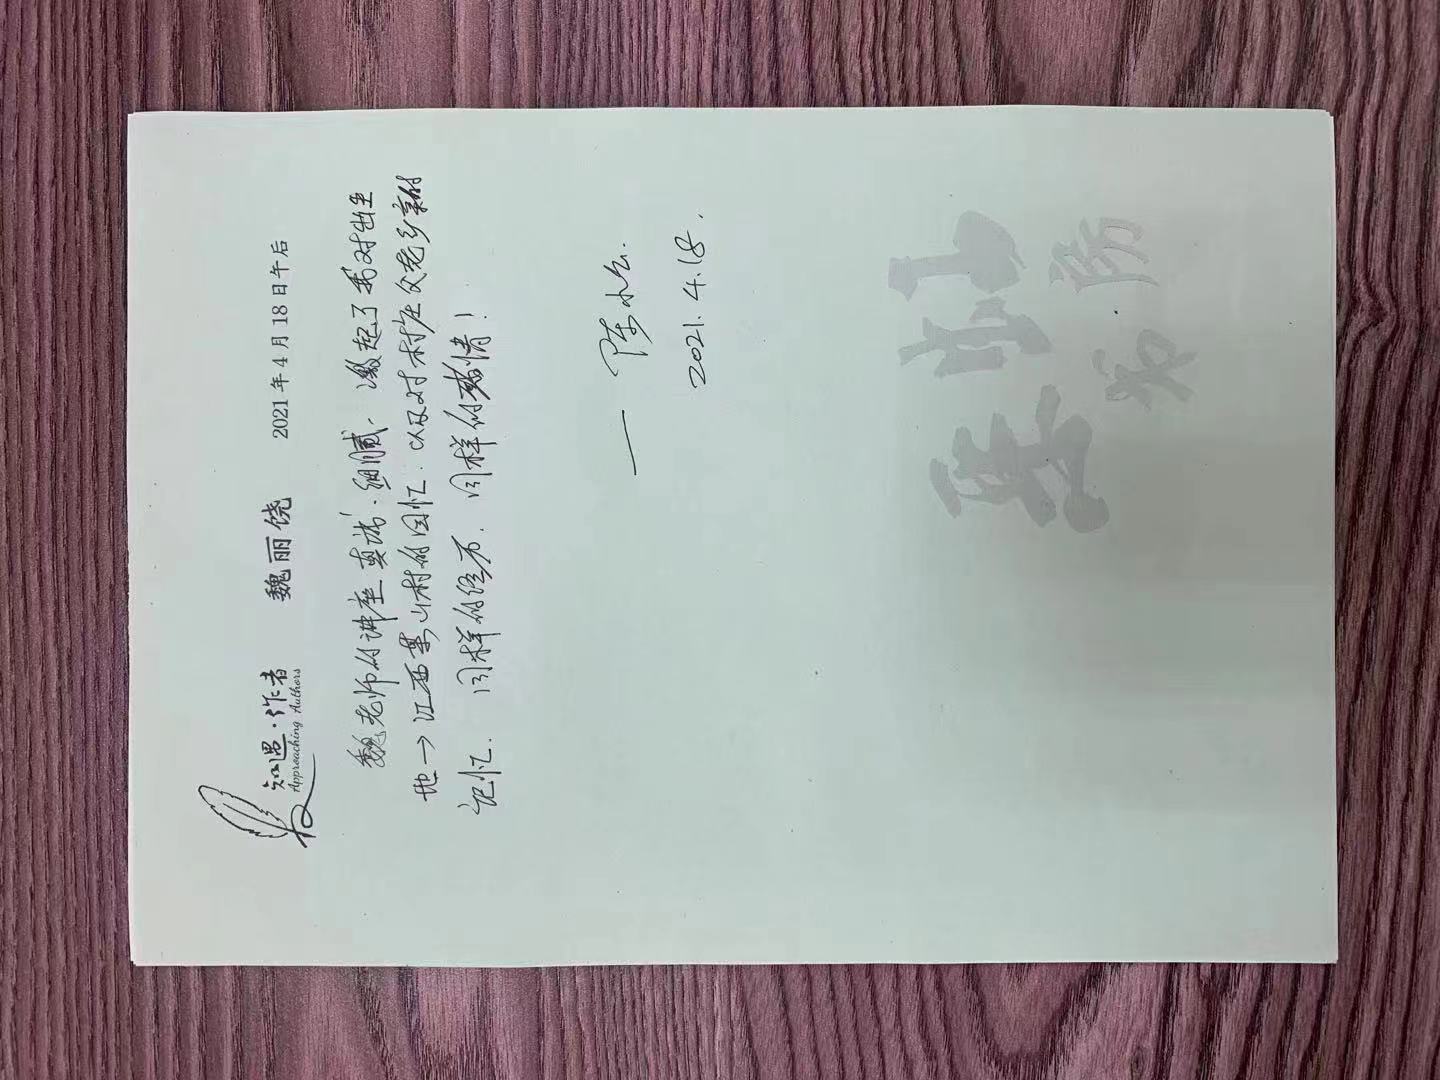 知遇·作者 魏丽饶 2021年4月18日午后
Approaching Authors
魏老师的讲座真诚、细腻、激起了我对出生
地→江西某山村的回忆.以及对村庄父老乡亲的
记忆.同样的经历.同样的感情!
— 陈小
2021.4.18.